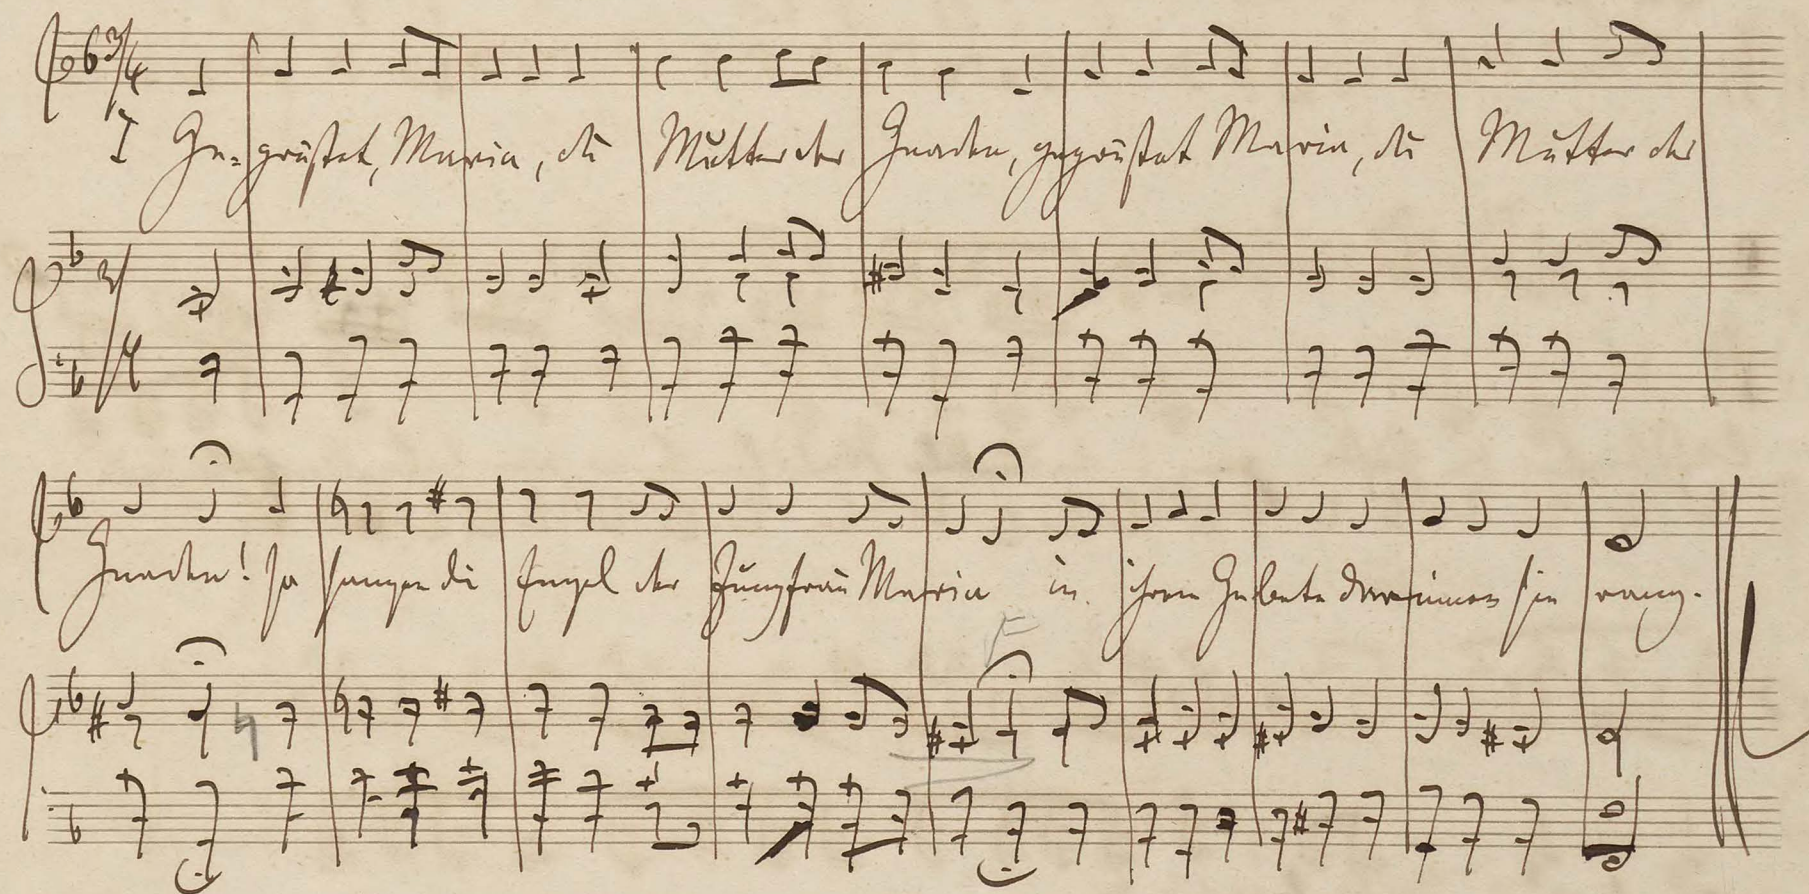 3/4
I Ge- grüßet, Maria, du Mutter der Gnaden, gegrüßet Maria, du Mutter der
3/4
Gnaden! so sangen die Engel der Jungfrau Maria in ihrem Gebete darinnen sie rang.
F